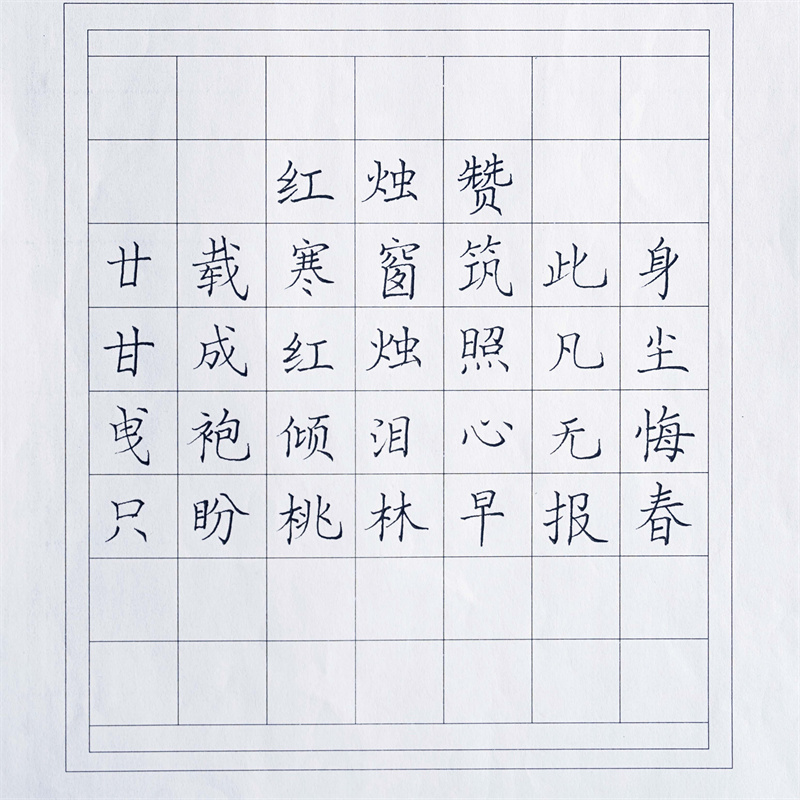 红烛赞
廿载寒窗筑此身
甘成红烛照凡尘
曳袍倾泪心无悔
只盼桃林早报春